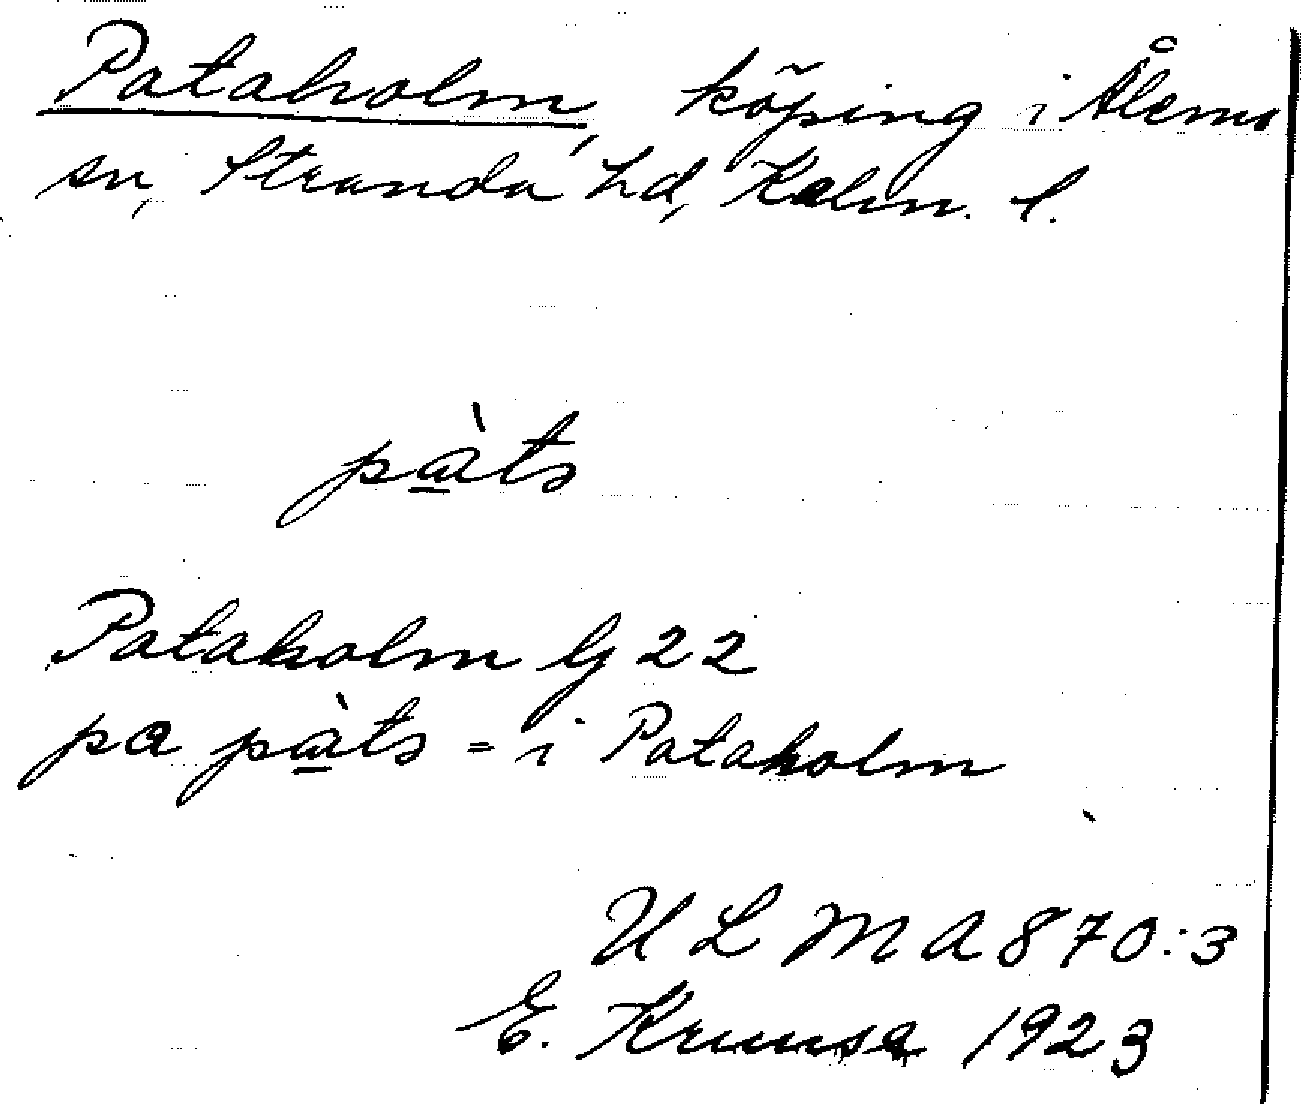 Pataholm, köping i Ålems
sn, Stranda hd, Kalm. l.
pà̲ts
Pataholm G 22
pa pà̲ts = i Pataholm
ULMA 870:3
E. Krumsa 1923